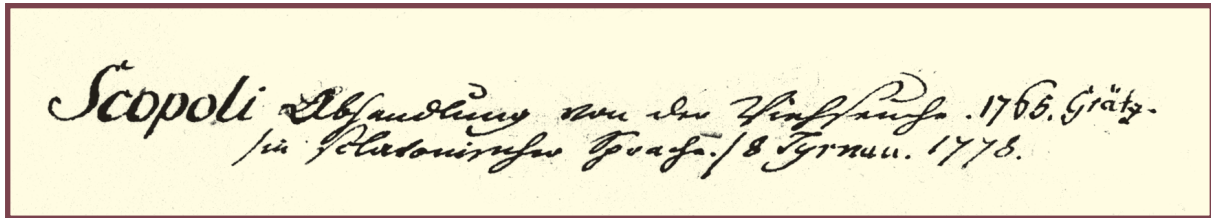 Scopoli Abhandlung von der Viehseuche. 1765. Grätz.
/in Sclavonischer Sprache./ 8 Tyrnau. 1778.